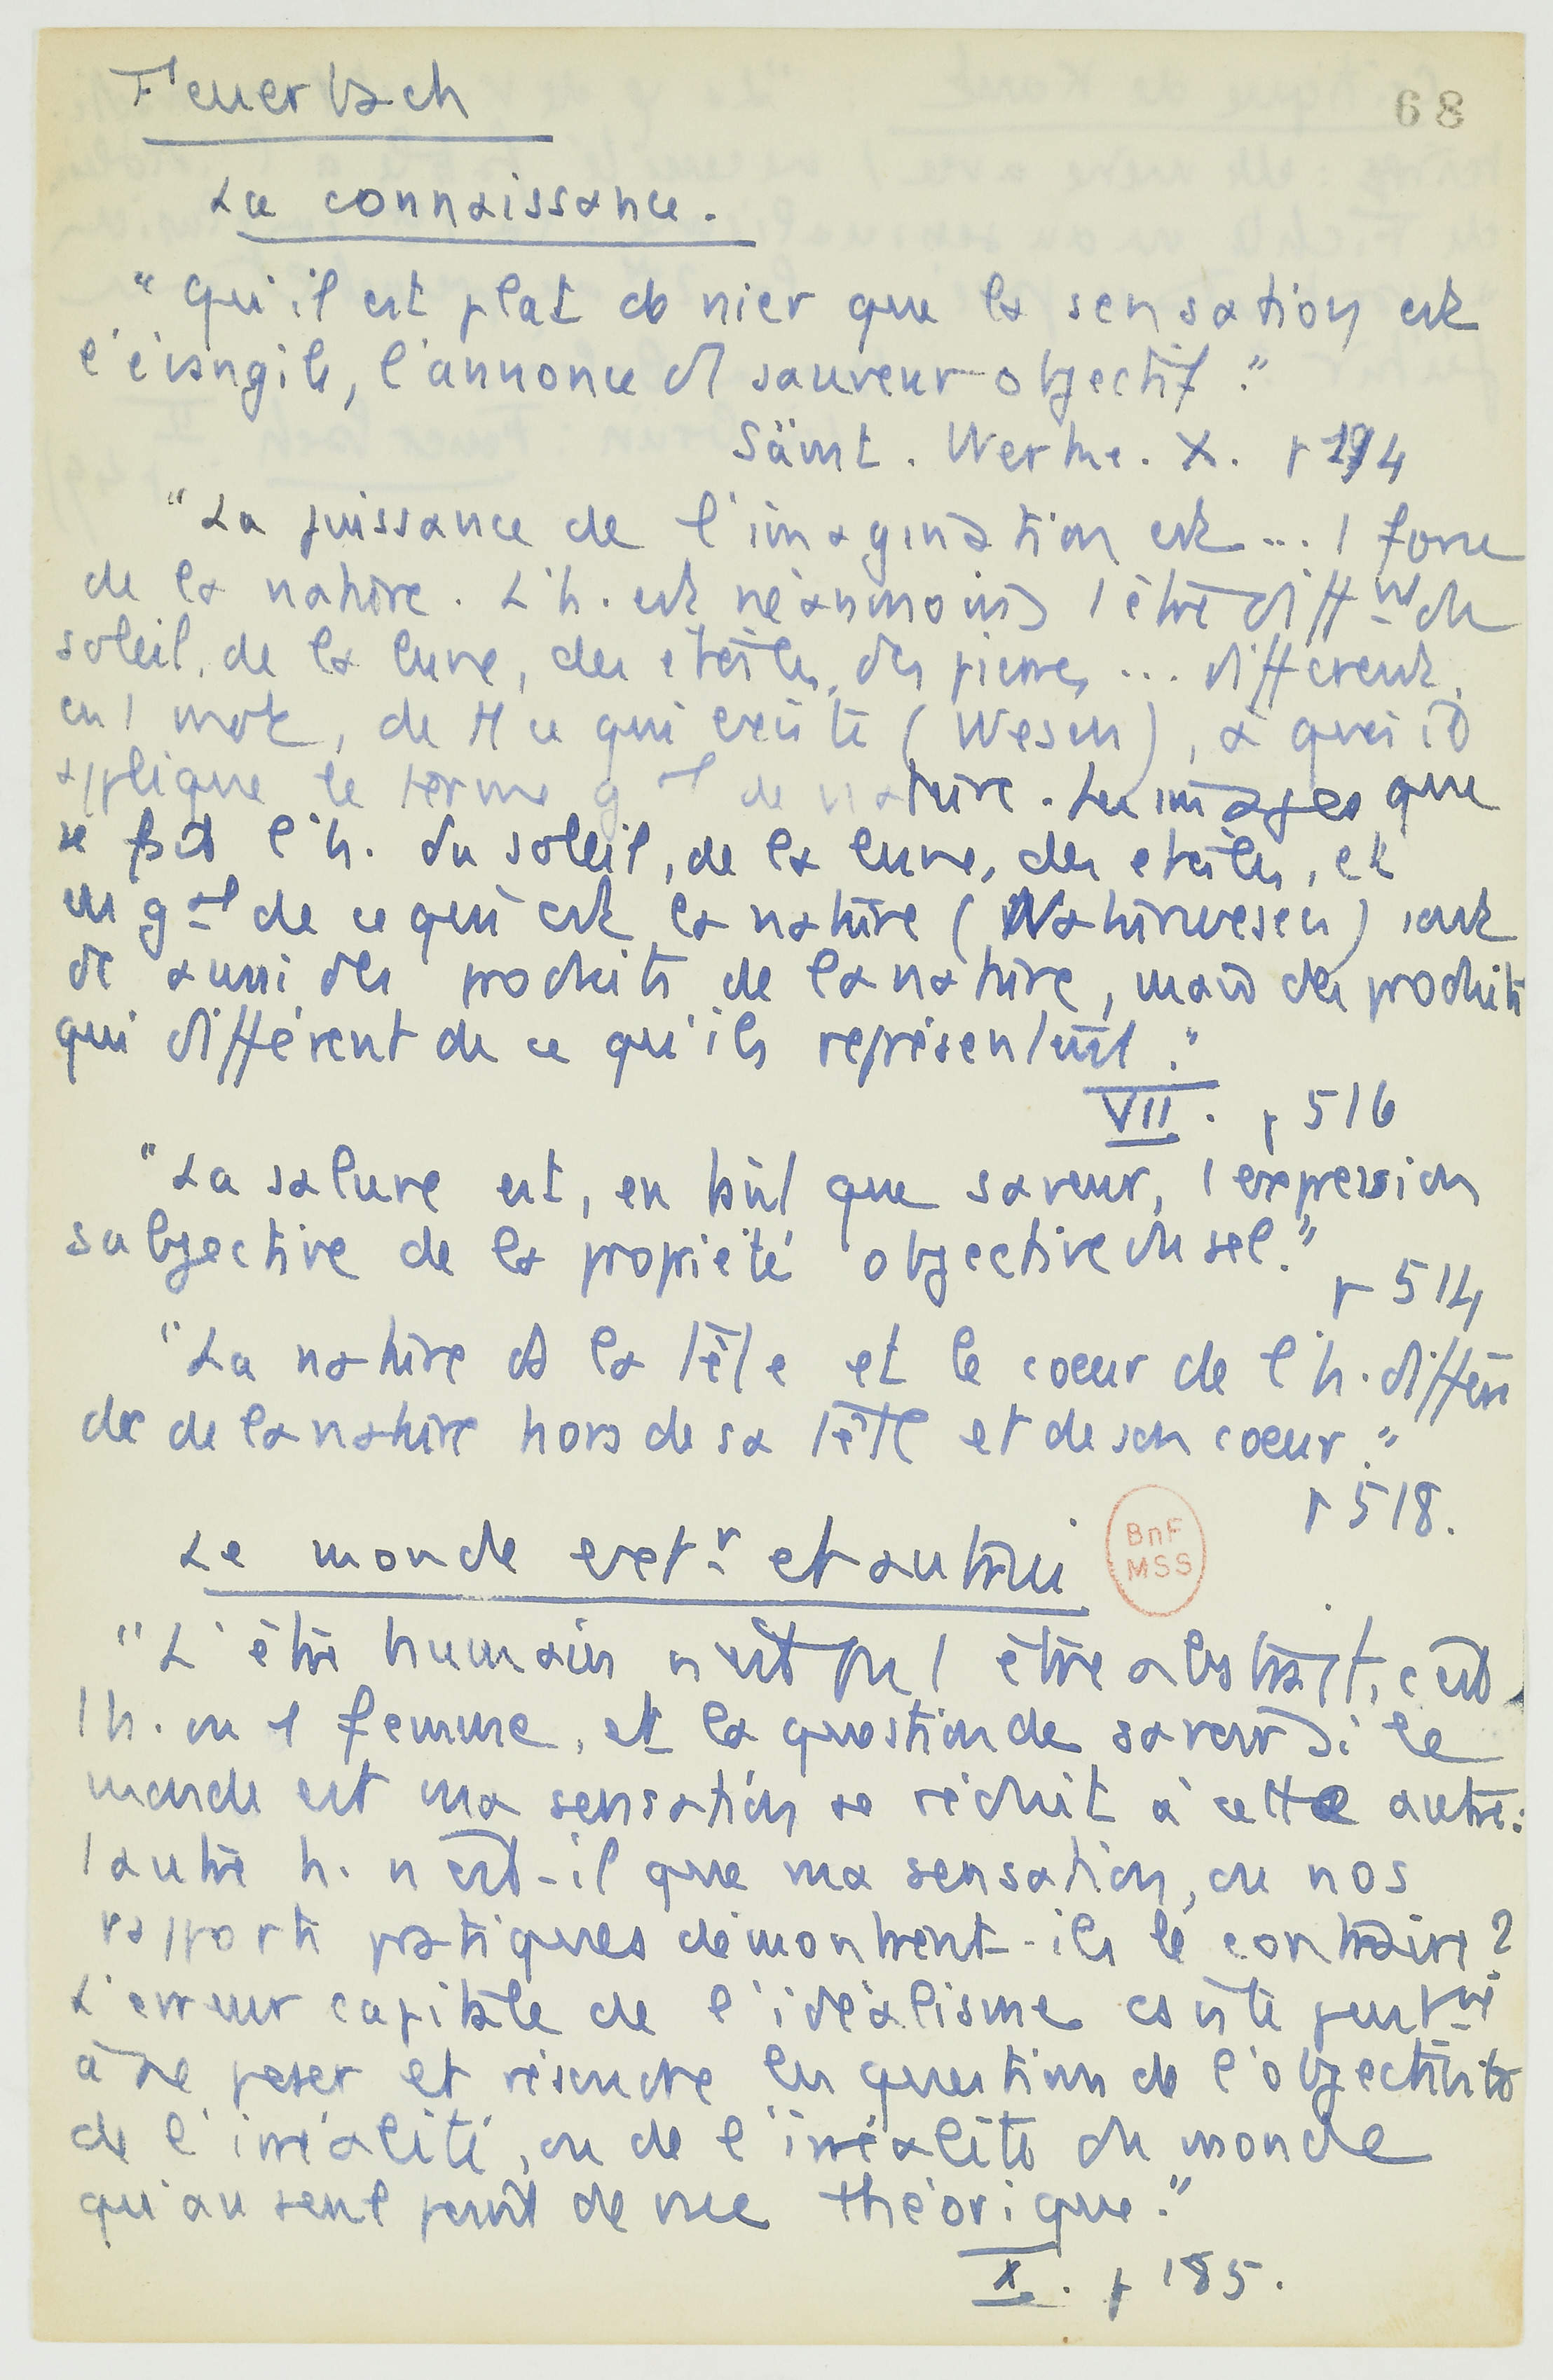 Feuerbach
68
La connaissance.
"Qu'il est plat de nier que la sensation est
l'évangile, l'annonce d'1 sauveur objectif."
Sämt. Werke. X. p 194
"La puissance de l'imagination est ... 1 force
de la nature. L'h. est néanmoins 1 être diff nt du
soleil, de la lune, des étoiles, des pierres ... différent,
en 1 mot, de tt ce qui existe (Wesen), à quoi il
applique le terme g al de nature. Les images que
se fait l'h. du soleil, de la lune, des étoiles, et
en g al de ce qui est la nature (Naturwesen) sont
dc aussi des produits de la nature, mais des produits
qui diffèrent de ce qu'ils représentent."
VII. p 516
"La salure est, en tant que saveur, l'expression
subjective de la propriété objective du sel."
p 514
"La nature ds la tête et le coeur de l'h. diffère
de la nature hors de sa tête et de son coeur."
p 518.
Le monde ext r et autrui
BnF
MSS
"L'être humain n'est pas 1 être abstrait, c'est
1 h. ou 1 femme, et la question de savoir si le
monde est ma sensation se réduit à cette autre:
l'autre h. n'est-il que ma sensation, ou nos
rapports pratiques démontrent-ils le contraire?
L'erreur capitale de l'idéalisme consiste
à ne poser et résoudre les questions de l'objectivité
de l'irréalité, ou de l'irréalité du monde
qu'au seul point de vue théorique."
X. p 185.